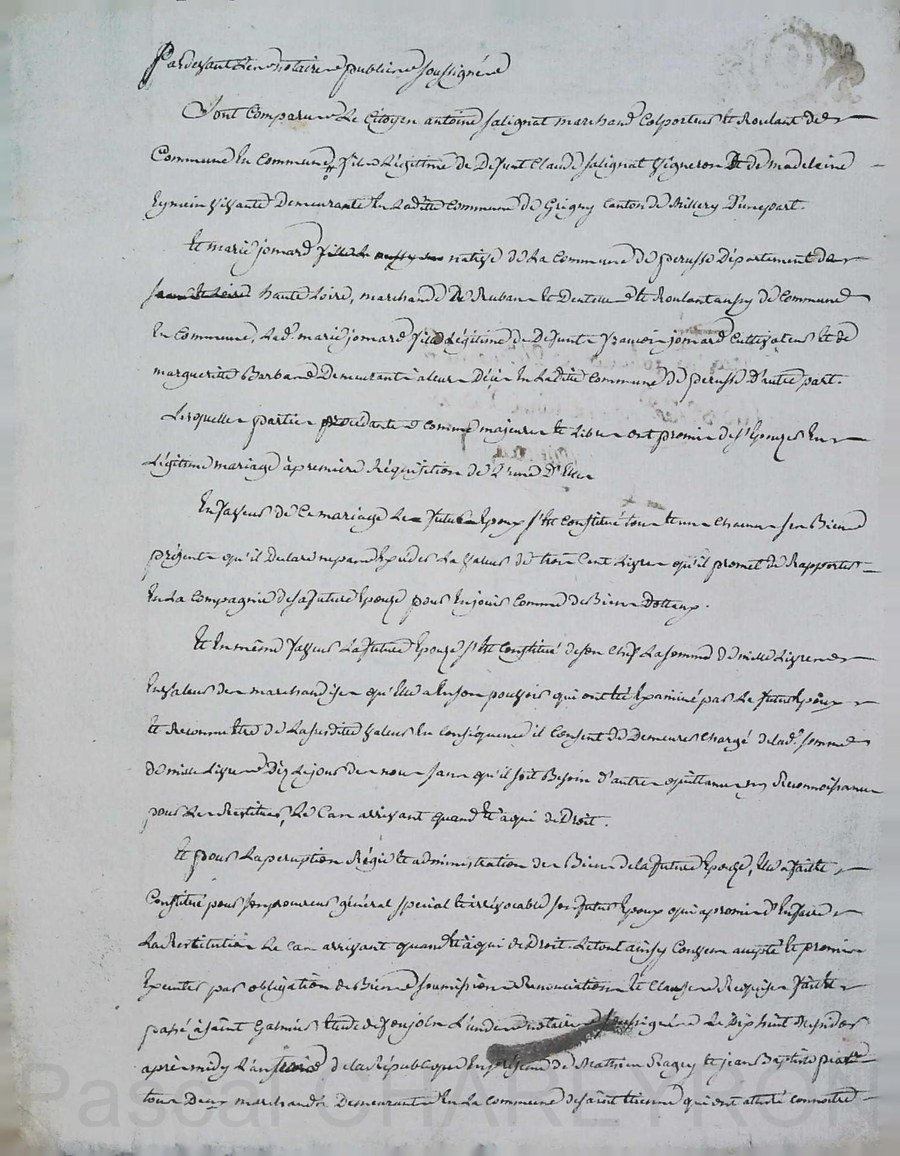 Pardevant les notaires publics soussignés
Sont comparus Le Citoyen antoine salignat marchand Colporteur et Roulant de
Commune En Commune, fils Légitime de Defunt Claude salignat vigneron Et de madeleine
Eymain vivante Demeurante En Ladite Commune de Grigny Canton de Millery D'une part.
Et marie jomard native de La Commune de perusse Département de
haute Loire, marchande De Ruban et Dentelles et Roulant aussy de Commune
En Commune, Lad. marie jomard fille Légitime de Defunt françois jomard Cultivateur Et de
marguerite Barbande Demeurant à leur Décès En Ladite Commune de perusse D'autre part.
Lesquelles parties procedantes Comme majeures et Libres ont promis de s'Epouzer En
Légitime mariage à première Réquisition de L'une D'Elles
En faveur de Ce mariage Le futur Epoux s'est Constitué tous et uns Chacuns ses Biens
présents qu'il Declare ne pas Excéder La valeur de trois Cent Livres qu'il promet de Rapporter
En La Compagnie de sa future Epouze pour En jouir Comme de Biens Dottaux.
Et En même faveur La future Epouze s'est Constitué de son Chef La somme de mille Livres
En valeur des marchandises qu'Elle a En son pouvoir qui ont été Examiné par Le futur Epoux
et Reconnu Etre de La susdite valeur En Conséquence il Consent de Demeurer Chargé de lad. somme
de mille Livres Dèz Le jour des nous sans qu'il soit Besoin d'autres quittances ny Reconnoissances
pour Les Restituer, Le Cas arrivant quand Et à qui de Droit.
Et pour La perception Régie et administration des Biens de la future Epouze, Elle a faitte
Constitué pour son procureur général spécial et irrévocable son futur Epoux qui a promis d'En faire
La Restitution Le Cas arrivant quand Et à qui de Droit. Le tout ainsy Convenu accepté et promis
Executer par obligation de Biens soumissions Renonciations et Clauses Requises faitte
passé à saint Galmier Etude de L'un des notaires soussignés Le Dix huit Messidor
après midy L'an de la République En présence de Mathieu Ragey et jean Baptiste piatr
tous Deux marchands Demeurants En La Commune de saint Etienne qui ont atesté connoitre
Pascal CHAREYRON